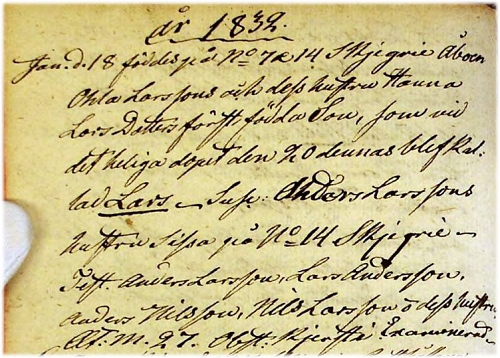 år 1832.
Jan. d. 18 föddes på No 7 & 14 Skjegrie Åboen
Ohla Larssons och dess hustru Hanna
Lars Dotters förstfödda Son, som vid
det heliga dopet den 20 dennas blef kal-
lad Lars – Susc: Anders Larssons
hustru Sissa på No 14 Skjegrie –
Test. Anders Larsson, Lars Andersson,
Anders Nilsson, Nils Larsson o dess hustru
Æt. M. 27. Obst: Skjerfsta Examinerad